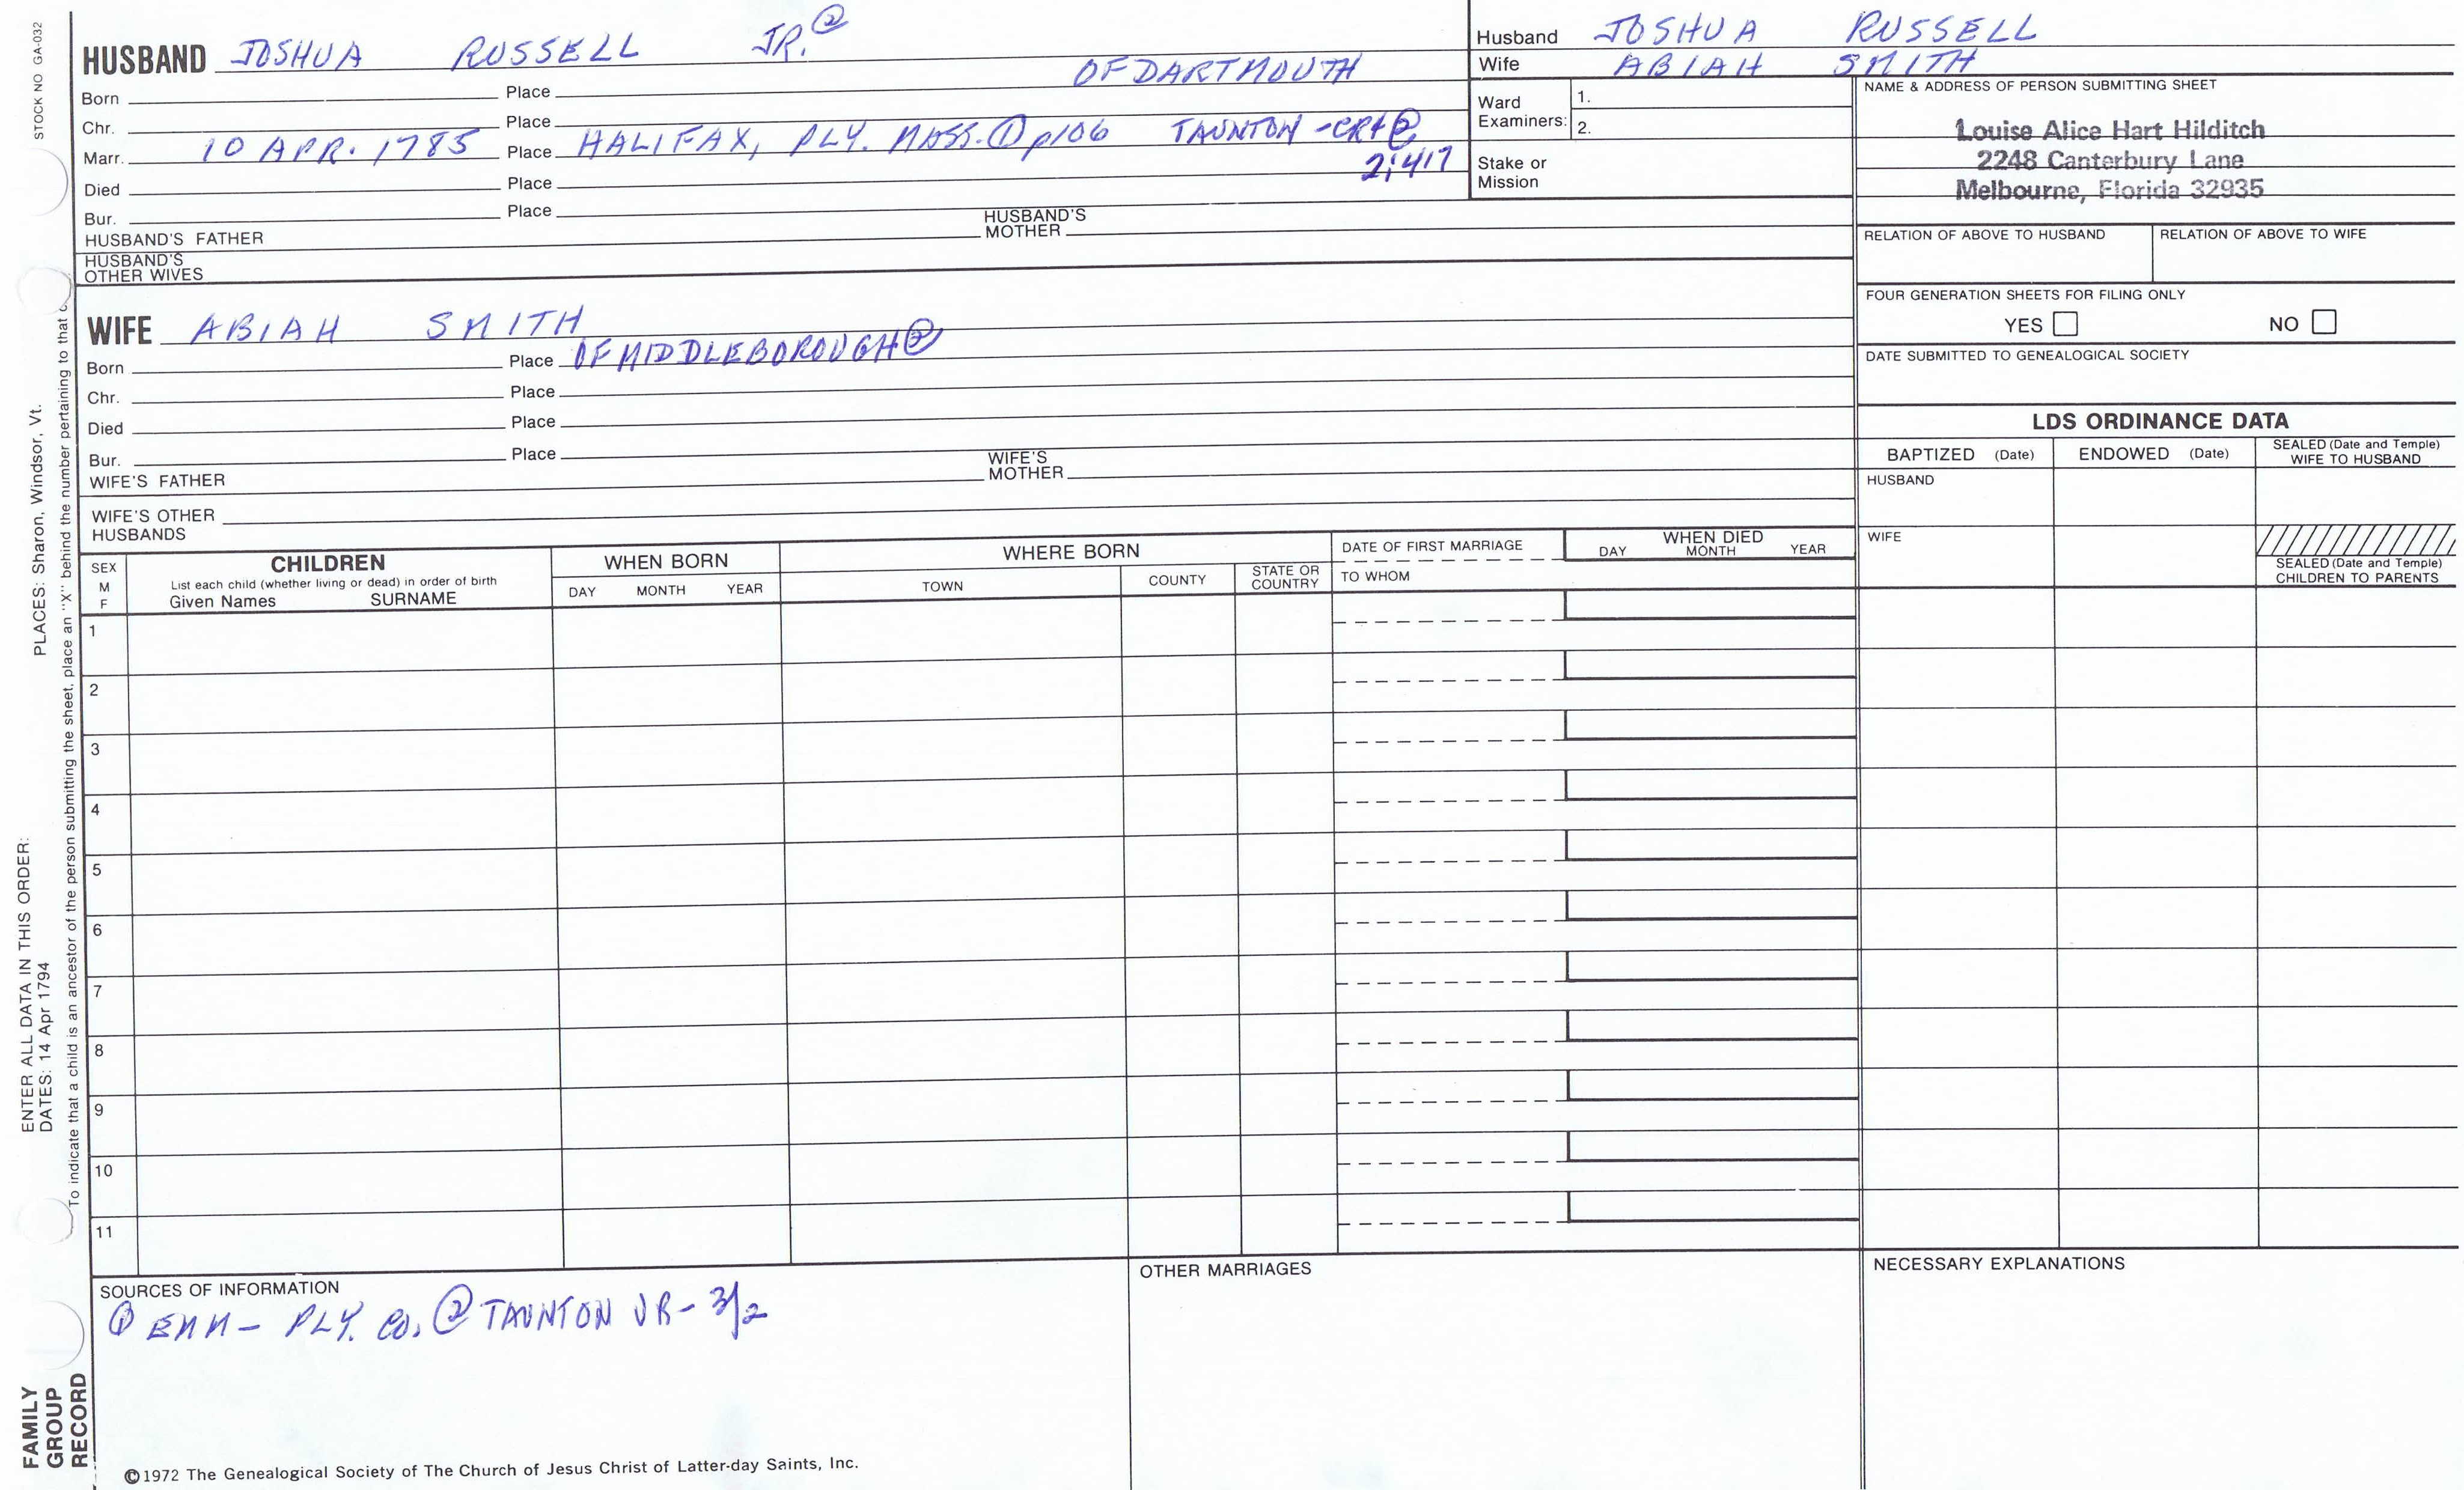 STOCK NO GA-032
HUSBAND JOSHUA RUSSELL JR. ②
OF DARTMOUTH
Born Place
Chr. Place
Marr. 10 APR. 1785 Place HALIFAX, PLY. MASS. ① p106 TAUNTON - CRT ②
2:417
Died Place
Bur. Place
HUSBAND'S FATHER HUSBAND'S MOTHER
HUSBAND'S OTHER WIVES
WIFE ABIAH SMITH
Born Place OF MIDDLEBOROUGH ②
Chr. Place
Died Place
Bur. Place
WIFE'S FATHER WIFE'S MOTHER
WIFE'S OTHER HUSBANDS
Husband JOSHUA RUSSELL
Wife ABIAH SMITH
Ward Examiners: 1.
2.
Stake or Mission
NAME & ADDRESS OF PERSON SUBMITTING SHEET
Louise Alice Hart Hilditch
2248 Canterbury Lane
Melbourne, Florida 32935
RELATION OF ABOVE TO HUSBAND RELATION OF ABOVE TO WIFE
FOUR GENERATION SHEETS FOR FILING ONLY
YES NO
DATE SUBMITTED TO GENEALOGICAL SOCIETY
LDS ORDINANCE DATA
BAPTIZED (Date) ENDOWED (Date) SEALED (Date and Temple) WIFE TO HUSBAND
HUSBAND
WIFE
SEALED (Date and Temple)
CHILDREN TO PARENTS
SEX M F
CHILDREN
List each child (whether living or dead) in order of birth
Given Names SURNAME
WHEN BORN
DAY MONTH YEAR
WHERE BORN
TOWN COUNTY STATE OR COUNTRY
DATE OF FIRST MARRIAGE
TO WHOM
WHEN DIED
DAY MONTH YEAR
1
2
3
4
5
6
7
8
9
10
11
SOURCES OF INFORMATION
① EMM - PLY. CO. ② TAUNTON VR - 3/2
OTHER MARRIAGES
NECESSARY EXPLANATIONS
©1972 The Genealogical Society of The Church of Jesus Christ of Latter-day Saints, Inc.
ENTER ALL DATA IN THIS ORDER:
DATES: 14 Apr 1794 PLACES: Sharon, Windsor, Vt.
To indicate that a child is an ancestor of the person submitting the sheet, place an "X" behind the number pertaining to that
FAMILY
GROUP
RECORD